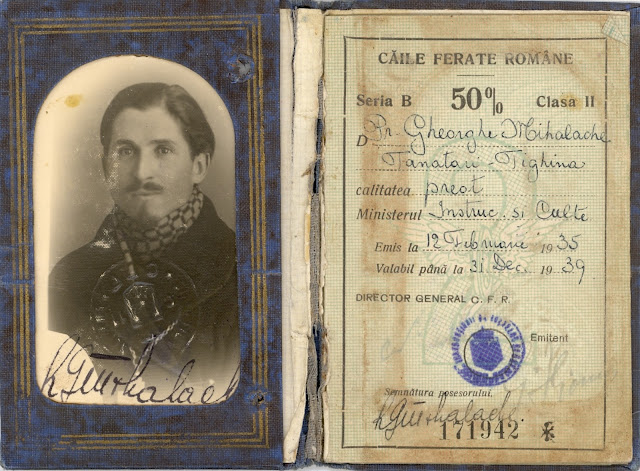 CĂILE FERATE ROMÂNE
Seria B 50% Clasa II
D Pr. Gheorghe Mihalache
Tanatari Tighina
calitatea preot
Ministerul Instruc. si Culte
Emis la 12 Februarie 1935
Valabil până la 31 Dec. 1939
DIRECTOR GENERAL C. F. R.
Emitent
Semnătura posesorului.
171942